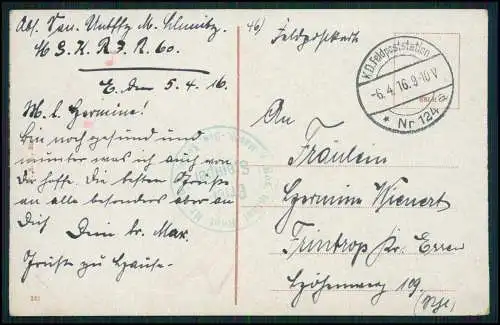 Abs. San. Untffz M. Schmitz.
4/S. K. R. I. R. 60.
E. den 5.4.16.
M. l. Hermine!
Bin noch gesund und
munter was ich auch von
Dir hoffe. Die besten Grüße
an alle besonders aber an
Dich Dein br. Max.
Grüße zu Hause.
46)
Feldpostkarte
K.D. Feldpoststation
-6.4.16.9-10V
* Nr 124 a
An
Fräulein
Hermine Wienert
Frintrop Kr. Essen
Höhenweg 109.